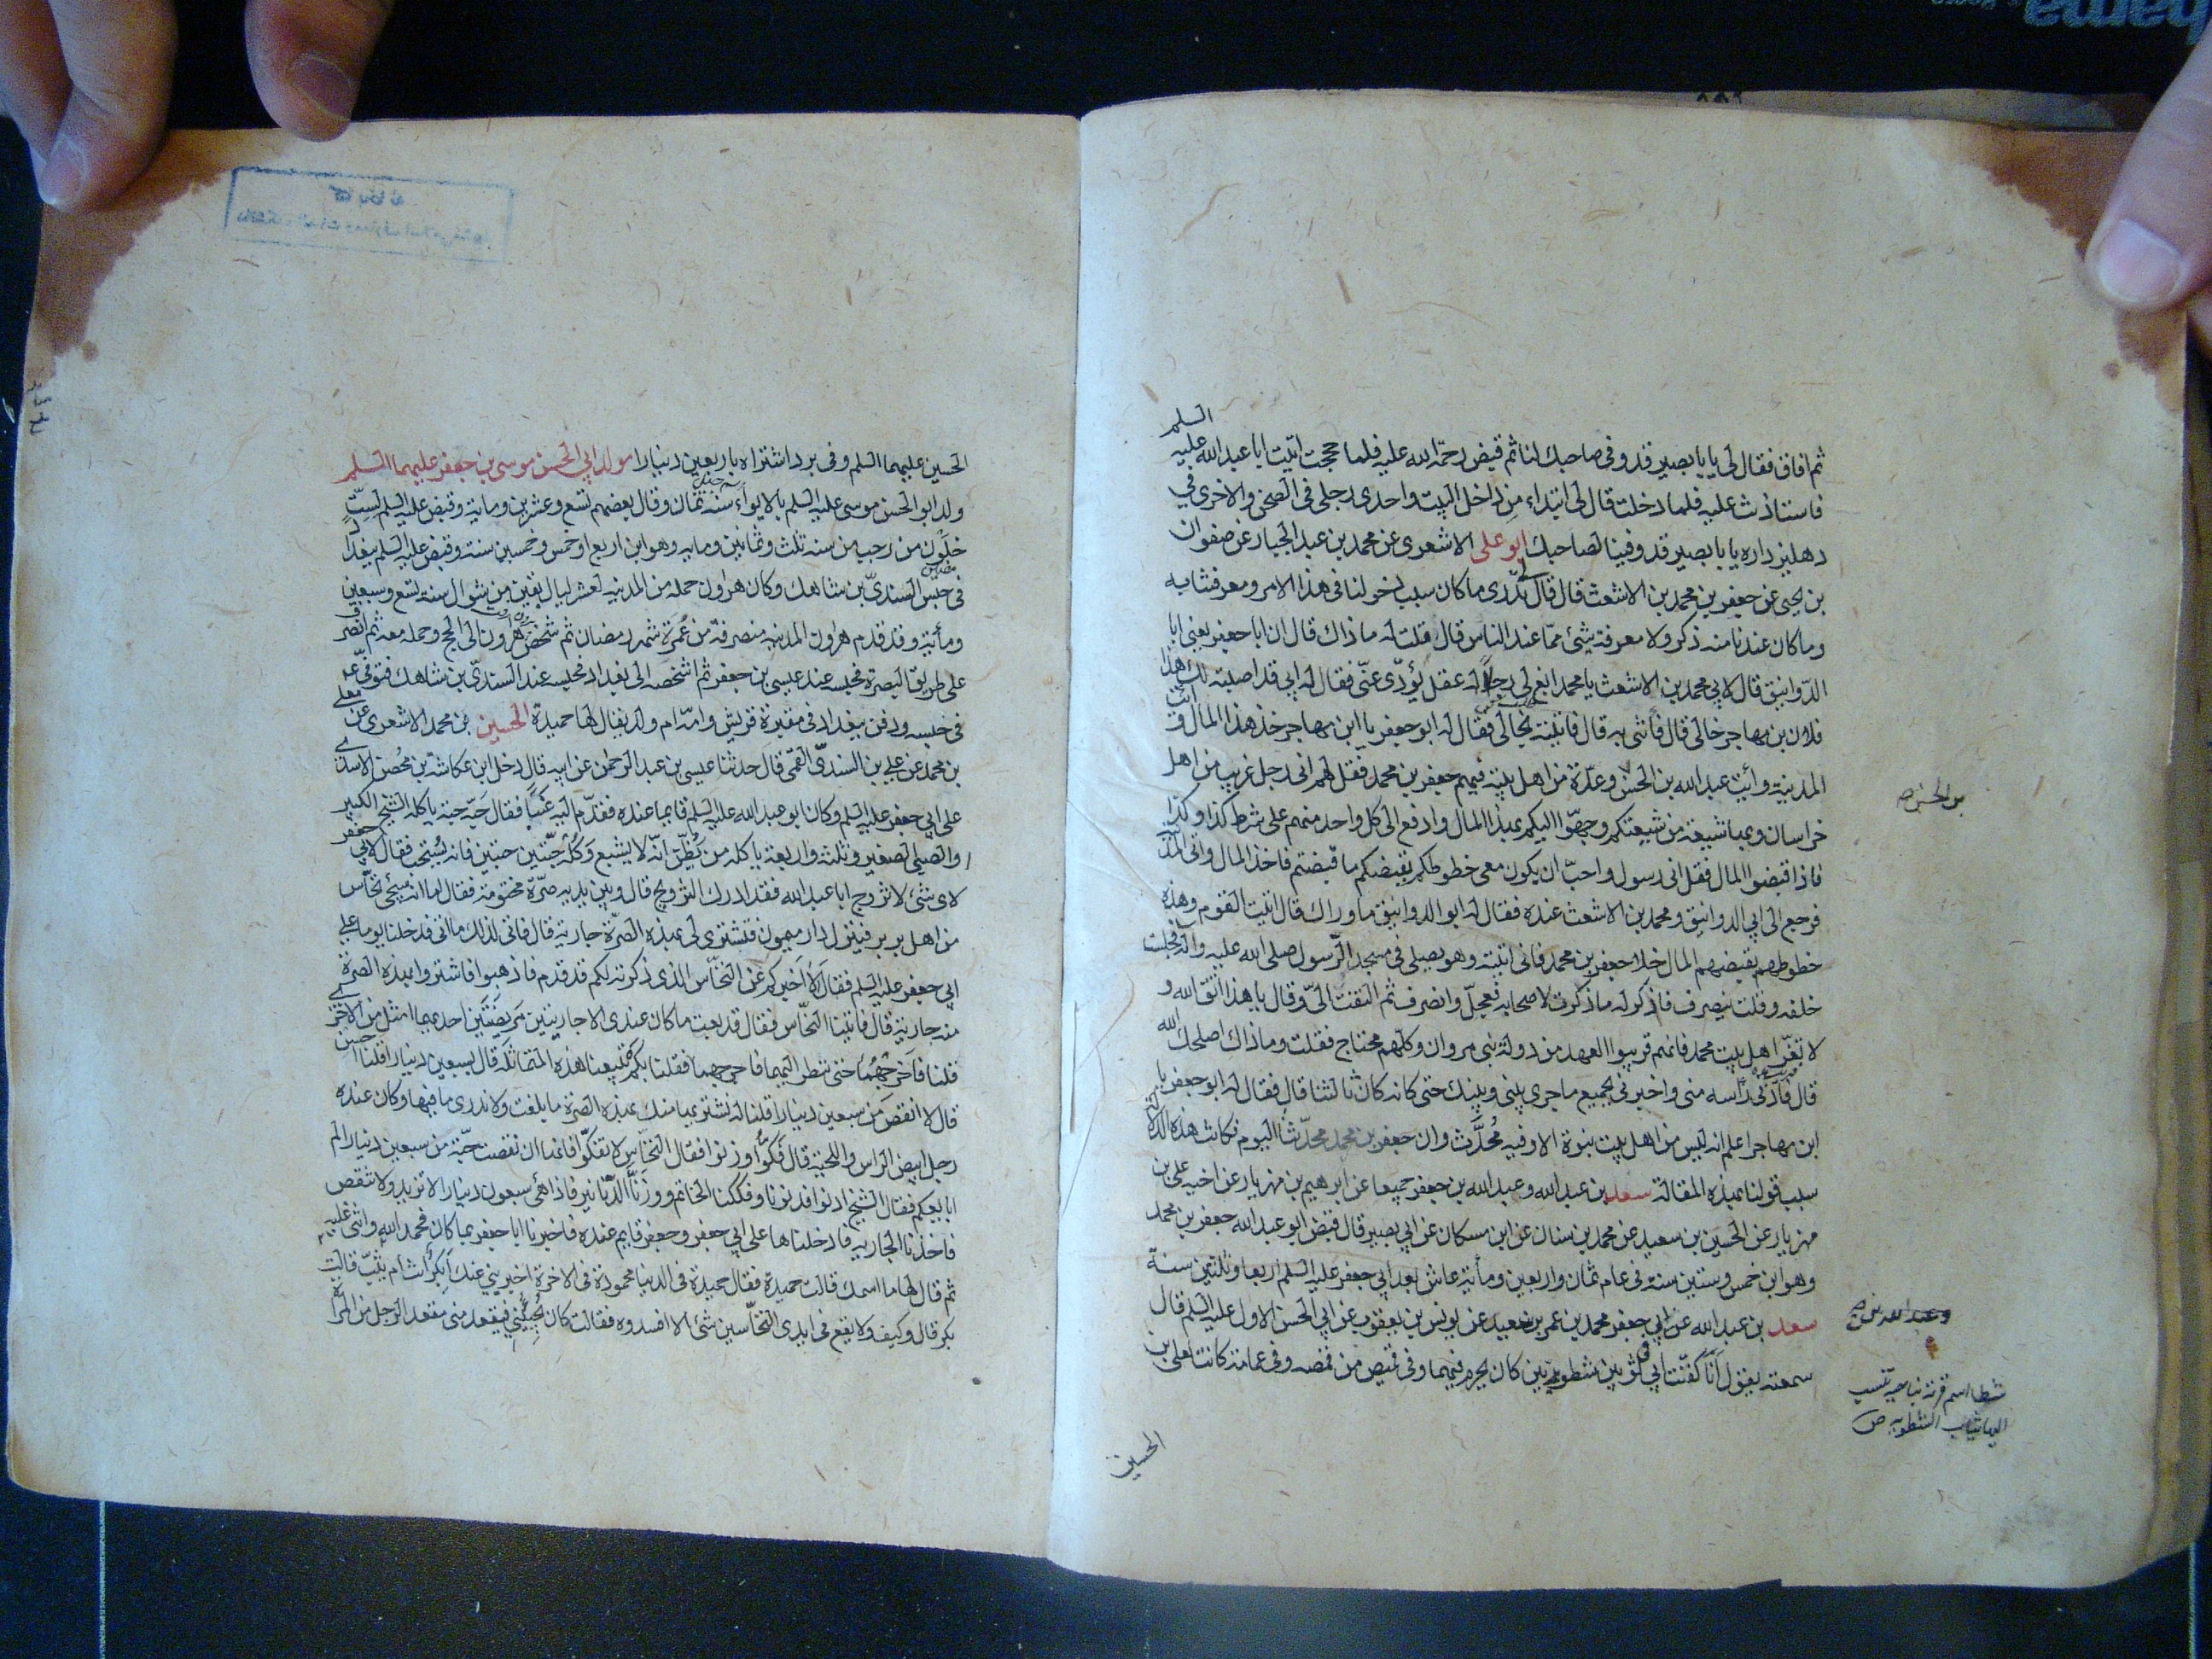 السلم
ثم افاق فقال لى يا با بصير قد وفى صاحبك لنا ثم قبض رحمة الله عليه فلما حججت اتيت ابا عبد الله عليه
فاستاذنت عليه فلما دخلت قال لى ابتداء من داخل البيت واحدى رجلى فى الصحن والاخرى في
دهليز داره يا با بصير قد وفينا لصاحبك ابو على الاشعرى عن محمد بن عبد الجبار عن صفوان
بن يحيى عن جعفر بن محمد بن الاشعث قال قال لى تدرى ما كان سبب دخولنا فى هذا الامر ومعرفتنا به
وما كان عندنا منه ذكر ولا معرفة شئ مما عند الناس قال قلت له ما ذاك قال ان ابا جعفر يعنى ابا
الدوانيق قال لابي محمد بن الاشعث يا محمد ابغ لى رجلا له عقل يؤدى عنى فقال له ابي قد اصبته لك هذا
فلان بن مهاجر خالى قال فأتنى به قال فاتيته بخالى فقال له ابو جعفر يا ابن مهاجر خذ هذا المال وأت
المدينة وأت عبد الله بن الحسن وعدة من اهل بيته فيهم جعفر بن محمد فقل لهم انى رجل غريب من اهل
خراسان وبها شيعة من شيعتكم وجهوا اليكم بهذا المال وادفع الى كل واحد منهم على شرط كذا وكذا
فاذا قبضوا المال فقل انى رسول واحب ان يكون معى خطوطكم بقبضكم ما قبضتم فاخذ المال واتى المدينة
فرجع الى ابي الدوانيق ومحمد بن الاشعث عنده فقال له ابو الدوانيق ما وراك قال اتيت القوم وهذه
خطوطهم بقبضهم المال خلا جعفر بن محمد فانى اتيته وهو يصلى فى مسجد الرسول صلى الله عليه وآله فجلست
خلفه وقلت ينصرف فاذكر له ما ذكرت لاصحابه فعجل وانصرف ثم التفت الىّ وقال يا هذا اتق الله و
لا تغر اهل بيت محمد فانهم قريبوا العهد من دولة بنى مروان وكلهم محتاج فقلت وما ذاك اصلحك الله
قال فأدنى رأسه منى واخبرنى بجميع ما جرى بينى وبينك حتى كانه كان ثالثنا قال فقال له ابو جعفر يا
ابن مهاجر اعلم انه ليس من اهل بيت نبوة الا وفيه مُحدَّث وان جعفر بن محمد محدّثنا اليوم فكانت هذه الدلالة
سبب قولنا بهذه المقالة سعد بن عبد الله وعبد الله بن جعفر جميعا عن ابرهيم بن مهزيار عن اخيه على بن
مهزيار عن الحسين بن سعيد عن محمد بن سنان عن ابن مسكان عن ابي بصير قال قبض ابو عبد الله جعفر بن محمد
وهو ابن خمس وستين سنة فى عام ثمان واربعين ومأية عاش بعد ابي جعفر عليه السلم اربعا وثلثين سنة
سعد بن عبد الله عن ابي جعفر محمد بن عمر بن سعيد عن يونس بن يعقوب عن ابي الحسن الاول عليه السلم قال
سمعته يقول انا كفنت ابي فى ثوبين شطويين كان يحرم فيهما وفى قميص من قمصه وفى عمامة كانت لعلى بن
الحسين
بن الحسن
شطا اسم قرية بناحية تنسب
اليها الثياب الشطوية ص
الحسين عليهما السلم وفى برد اشتراه باربعين دينارا مولد ابي الحسن موسى بن جعفر عليهما السلم
ولد ابو الحسن موسى عليه السلم بالابواء سنة ثمان وقال بعضهم تسع وعشرين ومأية وقبض عليه السلم لستٍّ
خلون من رجب من سنة ثلث وثمانين ومايه وهو ابن اربع او خمس وخمسين سنة وقبض عليه السلم ببغداد
فى حبس السندىّ بن شاهك وكان هرون حمله من المدينه لعشر ليال بقين من شوال سنة تسع وسبعين
ومأية وقد قدم هرون المدينه منصرفه من عُمرة شهر رمضان ثم شخص هرون الى الحج وحمله معه ثم انصرف
على طريق البصرة فحبسه عند عيسى بن جعفر ثم اشخصه الى بغداد فحبسه عند السندىّ بن شاهك فتوفى ع
فى حبسه ودفن ببغداد فى مقبرة قريش وامّه ام ولد يقال لها حميدة الحسين بن محمد الاشعرى عن معلى
بن محمد عن على بن السندىّ القمى قال حدثنا عيسى بن عبد الرحمن عن ابيه قال دخل ابن عكاشة بن محصن الاسدى
على ابي جعفر عليه السلم وكان ابو عبد الله عليه السلم قايما عنده فقدّم اليه عنبا فقال حبّة حبة ياكله الشيخ الكبير
والصبى الصغير وثلثه واربعة ياكله من يظنّ انه لا يشبع وكُله حبّتين حبتين فانه يُستحبّ فقال لابي جعفر
لاى شئ لا تزوج ابا عبد الله فقد ادرك التزويج قال وبين يديه صرّة مختومة فقال اما انه سيجئ نخّاس
من اهل بربر فينزل دار ميمون فتشترى له بهذه الصرّة جارية قال فاتى لذلك ما اتى فدخلنا يوما على
ابي جعفر عليه السلم فقال ألا اخبركم عن النخّاس الذى ذكرته لكم قد قدم فاذهبوا فاشتروا بهذه الصرّة
منه جارية قال فاتينا النخّاس فقال قد بعت ما كان عندى الا جاريتين مريضتين احديهما امثل من الاخرى
قلنا فاخرجهما حتى ننظر اليهما فاخرجهما فقلنا بكم تبيعنا هذه المتماثلة قال بسبعين دينارا قلنا احسن
قال لا انقص من سبعين دينارا قلنا له نشتريها منك بهذه الصرّة ما بلغت ولا ندرى ما فيها وكان عنده
رجل ابيض الراس واللحية قال فكّوا وزنوا فقال النخّاس لا تفكّوا فانها ان نقصت حبّة من سبعين دينارا لم
ابايعكم فقال الشيخ ادنوا فدنونا وفككنا الخاتم ووزنّا الدنانير فاذا هى سبعون دينارا لا تزيد ولا تنقص
فاخذنا الجارية فادخلناها على ابي جعفر وجعفر قايم عنده فاخبرنا ابا جعفر بما كان فحمد الله واثنى عليه
ثم قال لها ما اسمك قالت حميدة فقال حميدة فى الدنيا محمودة فى الاخرة اخبرينى عنك أبكر أنت ام ثيّب قالت
بكر قال وكيف ولا يقع فى ايدى النخّاسين شئ الا افسدوه فقالت كان يجيئنى فيقعد منى مقعد الرجل من المرأة